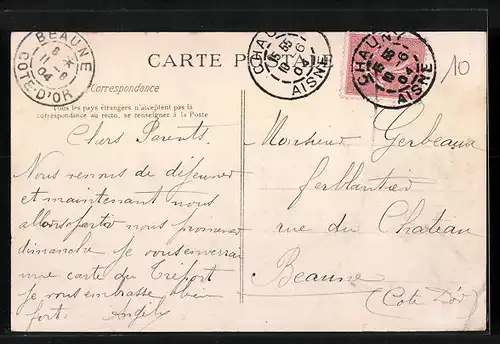 BEAUNE
6
11-8
04
COTE-D'OR
CARTE POSTALE
CHAUNY
AISNE
CHAUNY
AISNE
10
Correspondance
Tous les pays étrangers n'acceptent pas la
correspondance au recto, se renseigner à la Poste
Chers Parents.
Nous venons de déjeuner
et maintenant nous
allons partir nous promener
dimanche je vous enverrai
une carte du Tréport
je vous embrasse bien
fort.
Monsieur Gerbeaux
ferblantier
rue du Chateau
Beaune
(Cote d'Or)